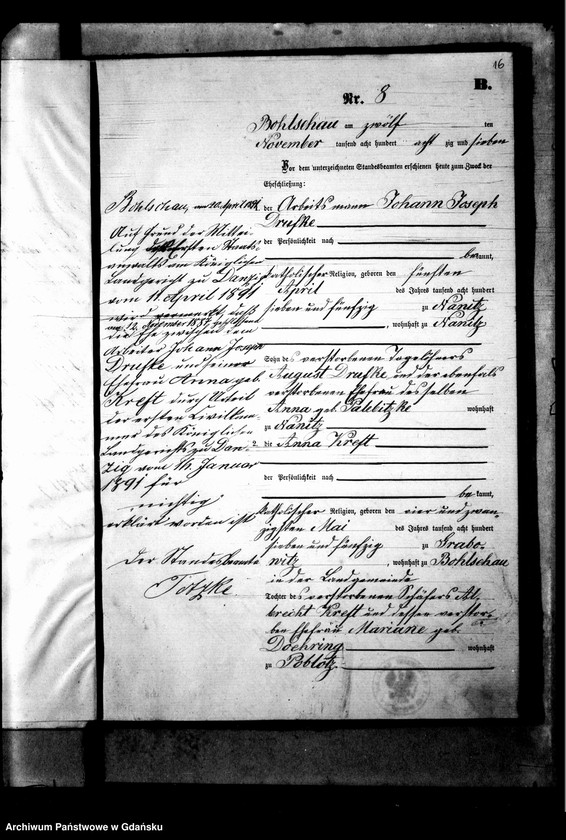 16
B.
Nr. 8
Bohlschau am zwölf ten
November tausend acht hundert acht zig und sieben
Vor dem unterzeichneten Standesbeamten erschienen heute zum Zweck der
Eheschließung:
1. der Arbeitsmann Johann Joseph
Drufke
der Persönlichkeit nach
be kannt,
katholischer Religion, geboren den fünften
April des Jahres tausend acht hundert
sieben und fünfzig zu Nanitz
, wohnhaft zu Nanitz
Sohn des verstorbenen Tagelöhners
August Drufke und der ebenfalls
verstorbenen Ehefrau desselben
Anna geb. wohnhaft
zu Nanitz
2. die Anna Kreft
der Persönlichkeit nach
be kannt,
katholischer Religion, geboren den vier und zwan-
zigsten Mai des Jahres tausend acht hundert
sieben und fünfzig zu Grabo-
witz, wohnhaft zu Bohlschau
in der Landgemeinde
Tochter des verstorbenen Schäfers Al-
brecht Kreft und dessen verstor-
ben Ehefrau Mariane geb.
Doehring wohnhaft
zu Poblotz
Bohlschau, am 20. April 1891
Auf Grund der Mittei
lung des Ersten Staats
anwalts am Königlichen
Landgericht zu Danzig
vom 11. April 1891
wird vermerkt, daß
am 12. November 1887 geschlossene
die Ehe zwischen dem
Arbeiter Johann Joseph
Drufke und seiner
Ehefrau Anna geb.
Kreft durch Urteil
der ersten Zivilkam-
mer des Königlichen
Landgerichts zu Dan-
zig vom 14. Januar
1891 für
nichtig
erklärt worden ist
Der Standesbeamte
Totzke
Archiwum Państwowe w Gdańsku